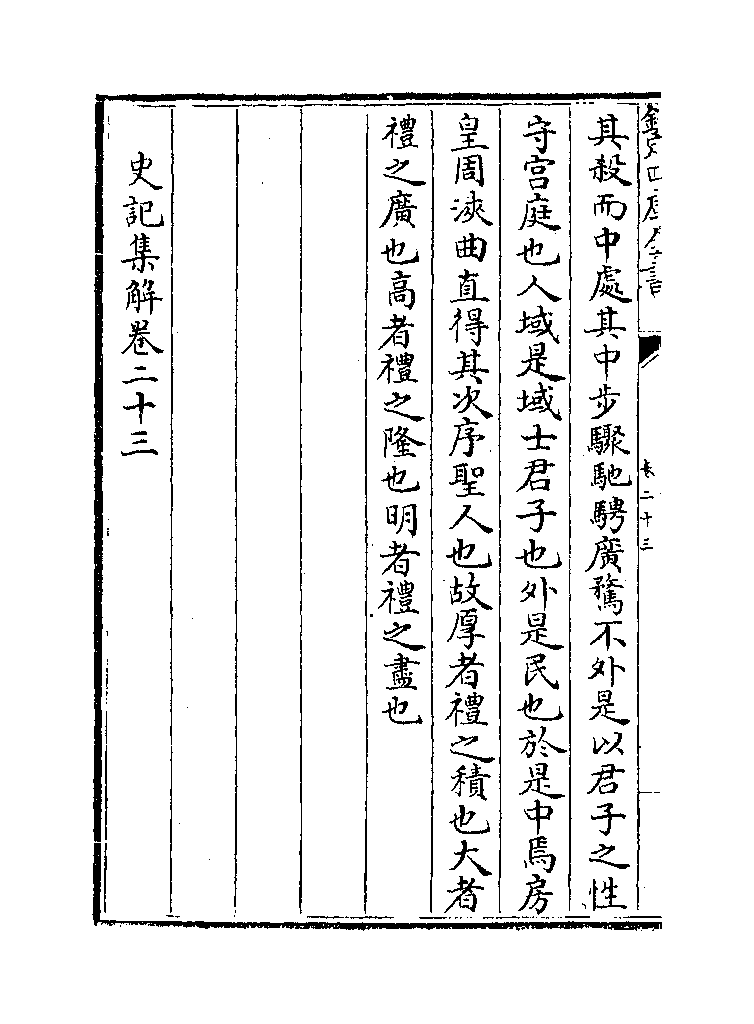 欽定四庫全書
卷二十三
其殺而中處其中步驟馳騁廣騖不外是以君子之性
守宫庭也人域是域士君子也外是民也於是中焉房
皇周浹曲直得其次序聖人也故厚者禮之積也大者
禮之廣也高者禮之隆也明者禮之盡也
史記集解卷二十三